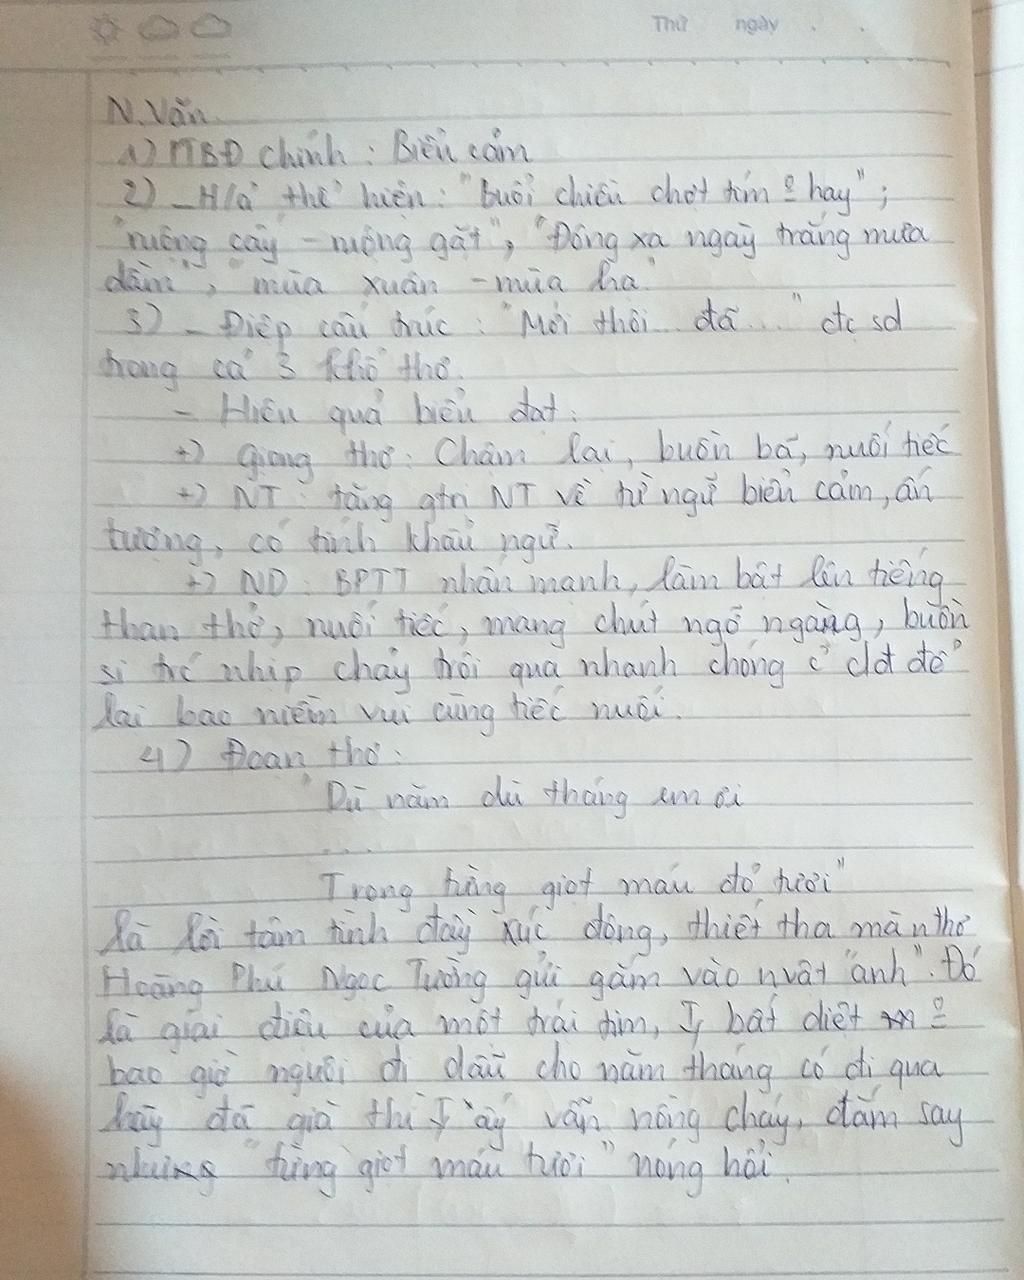 Thứ ngày . .
N. Văn
1) PTBĐ chính : Biểu cảm
2) - H/ả thể hiện : "Buổi chiều chợt tím º hay" ;
"ruộng cày - ruộng gặt", "Đồng xa ngày trắng mưa
dầm", "mùa xuân - mùa hạ"
3) - Điệp cấu trúc : "Mới thôi đã ..." đc sd
trong cả 3 khổ thơ.
- Hiệu quả biểu đạt :
+) Giọng thơ : Chậm lại, buồn bã, nuối tiếc
+) NT : tăng gtrị NT về từ ngữ biểu cảm, ấn
tượng, có tính khẩu ngữ.
+) ND : BPTT nhấn mạnh, làm bật lên tiếng
than thở, nuối tiếc, mang chút ngỡ ngàng, buồn
nhịp chảy trôi qua nhanh chóng để
lại bao niềm vui cùng tiếc nuối.
4) Đoạn thơ :
"Dù năm dù tháng em ơi
...
Trong từng giọt máu đỏ tươi"
là lời tâm tình đầy xúc động, thiết tha mà nthơ
Hoàng Phủ Ngọc Tường gửi gắm vào nvật "anh". Đó
là giai điệu của một trái tim, bất diệt º
bao giờ nguôi đi dẫu cho năm tháng có đi qua
hãy đã già thì ấy vẫn nồng cháy, đắm say
"từng giọt máu tươi" nóng hổi.